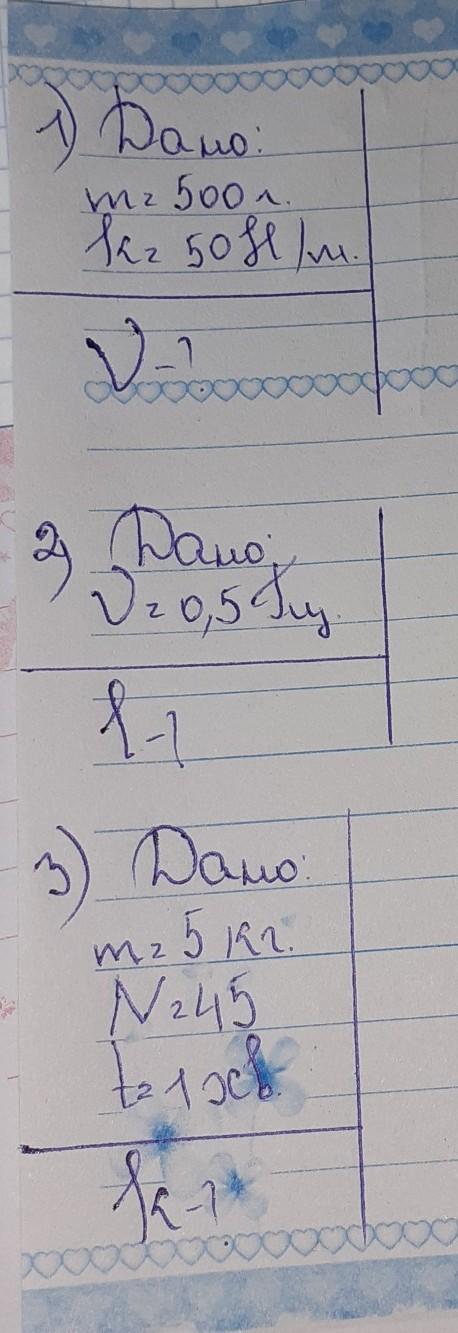 1) Дано:
m = 500 г.
k = 50 Н/м.
ν - ?
2) Дано:
ν = 0,5 Гц.
l - ?
3) Дано:
m = 5 кг.
N = 45
t = 1 хв.
k - ?